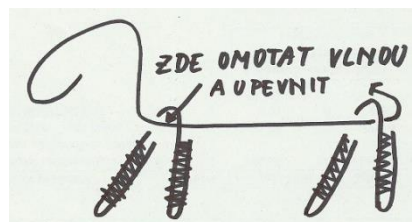 ZDE OMOTAT VLNOU
A UPEVNIT